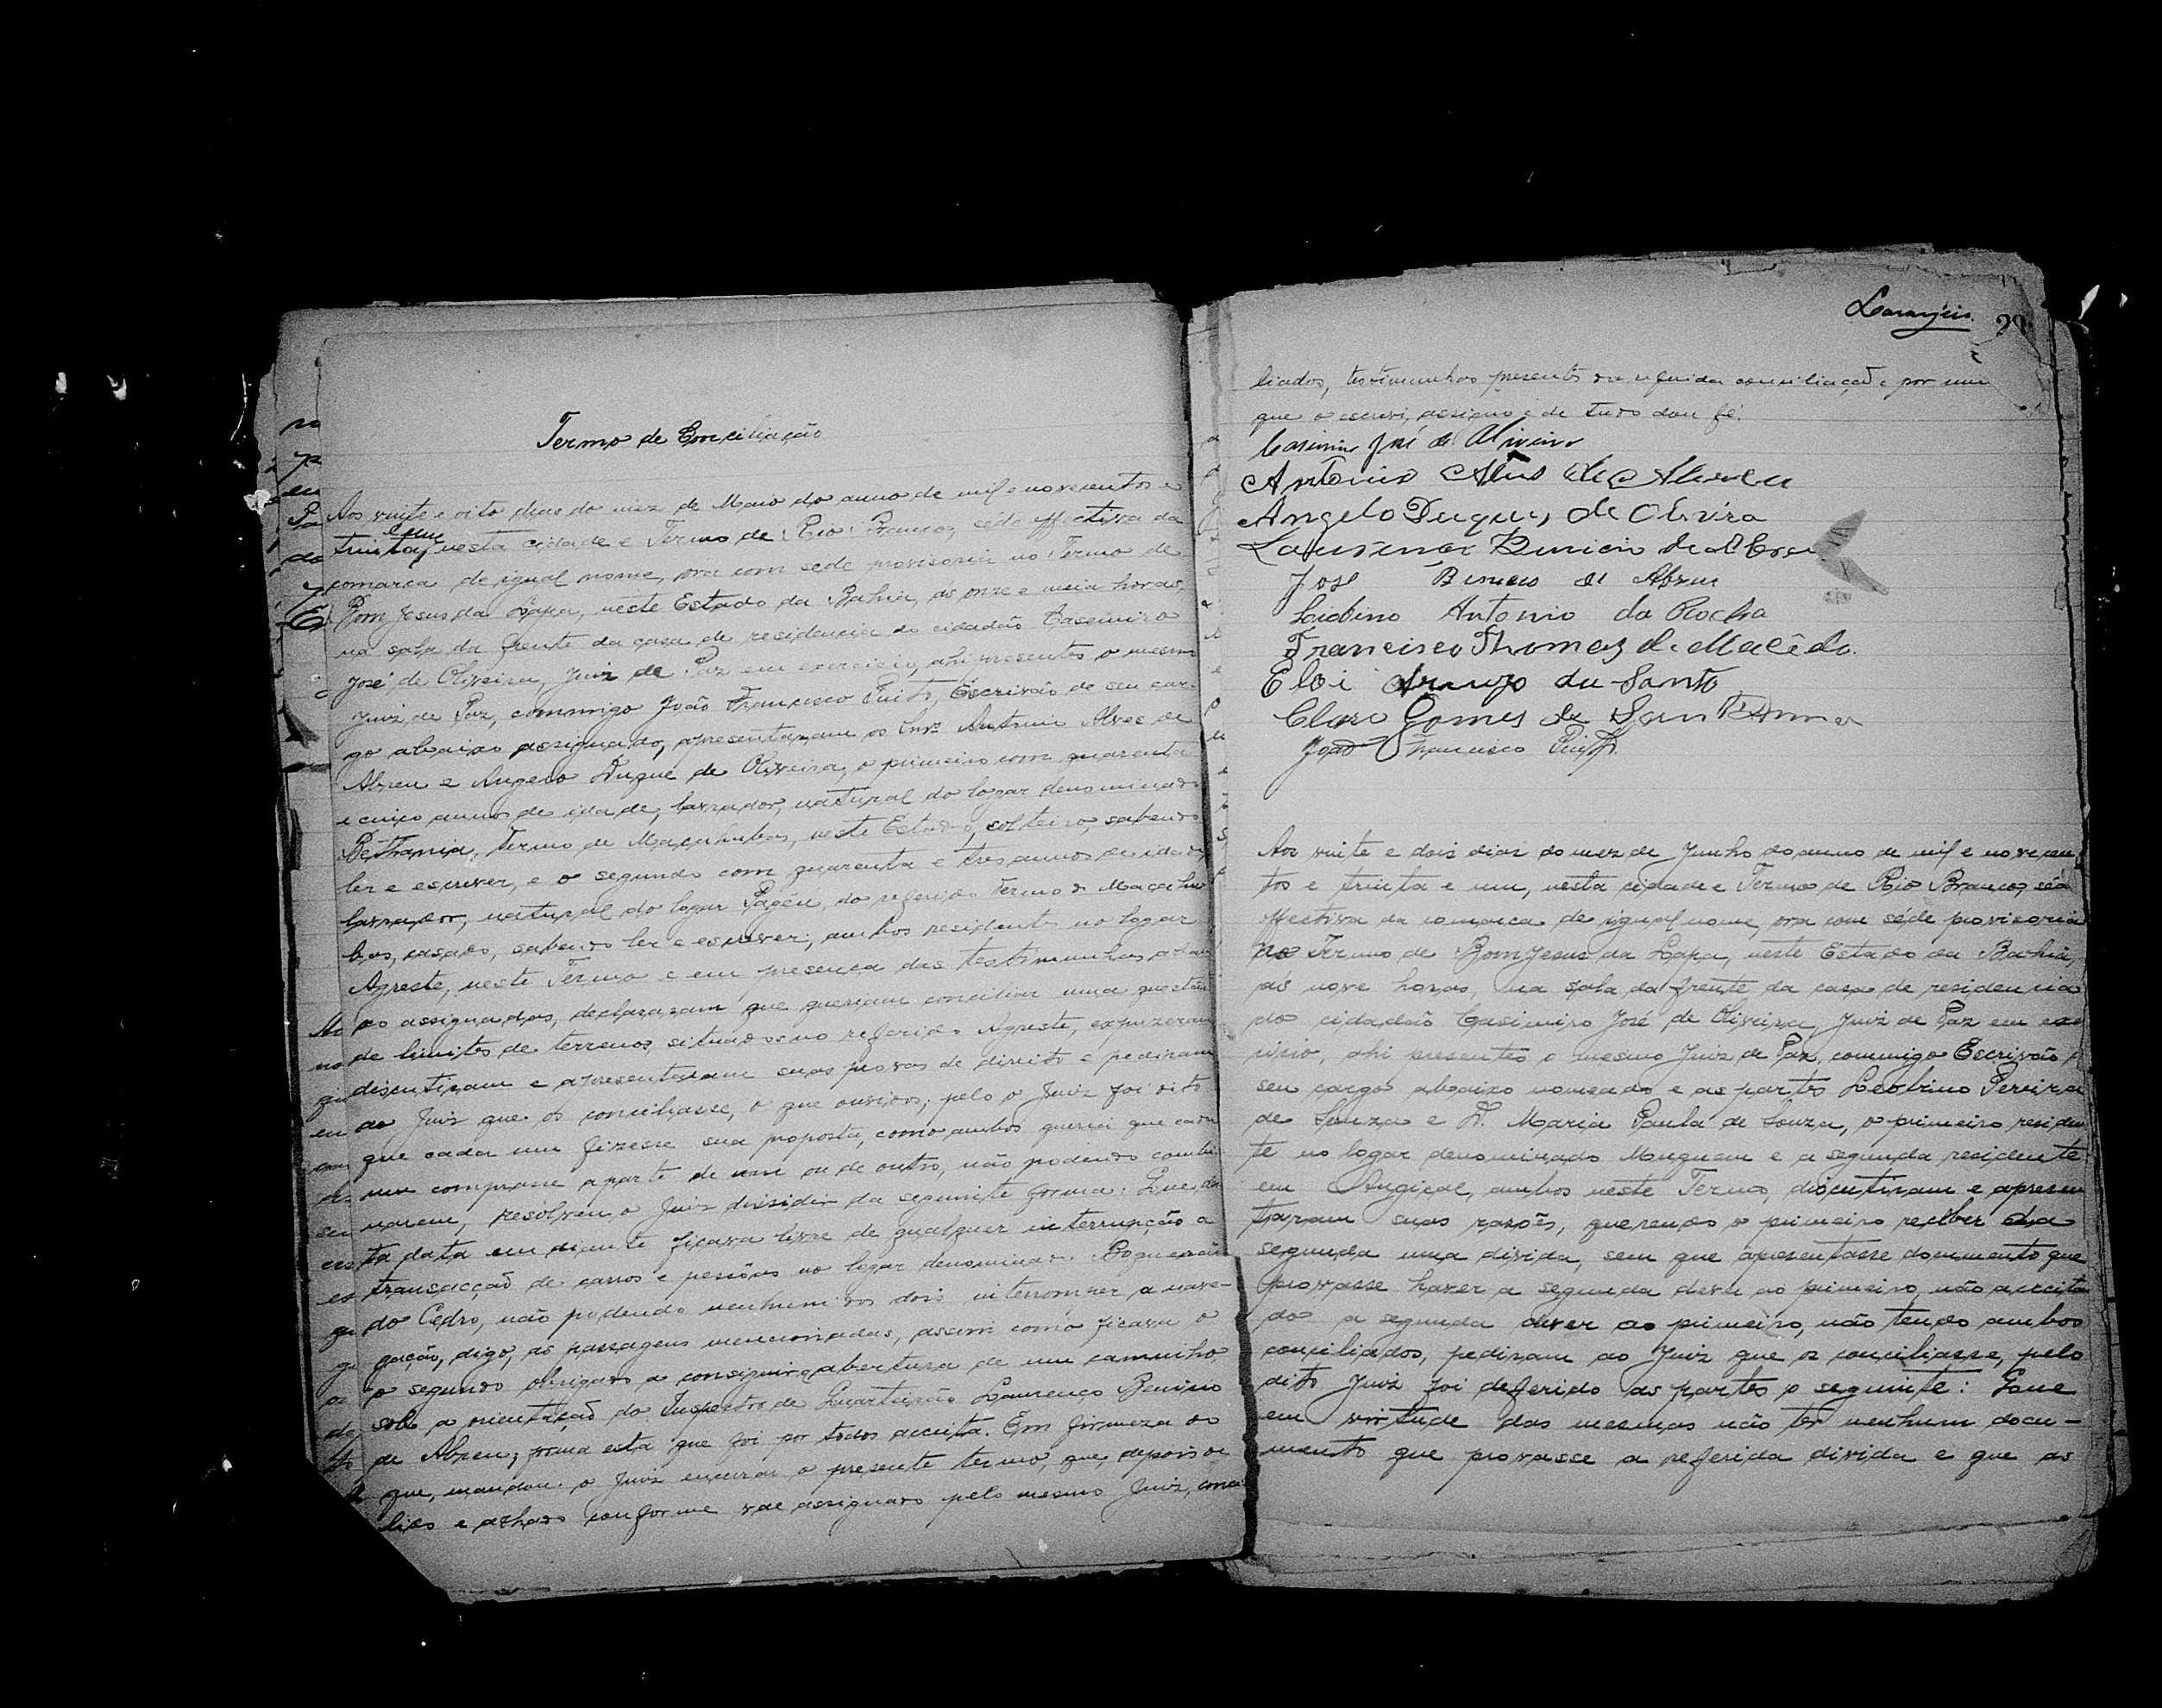 Termo de Conciliação
Aos vinte e oito dias do mez de Maio do anno de mil e novecentos e
trinta e um nesta cidade e Termo de Rio Branco, séde effectiva da
comarca de igual nome, ora com séde provisoria no Termo de
Bom Jesus da Lapa, neste Estado da Bahia, ás onze e meia horas,
na sala da frente da casa de residencia do cidadão Casemiro
José de Oliveira, Juiz de Paz em exercicio, ahi presentes o mesmo
Juiz de Paz, commigo João Francisco Escrivão de seu car-
go abaixo assignado, apresentaram os Antonio Alves de
Abreu e Angelo Duque de Oliveira, o primeiro com quarenta
e cinco annos de idade, lavrador, natural do logar denominado
Bethania, Termo de Macahubas, neste Estado, solteiro, sabendo
ler e escrever, e o segundo com quarenta e tres annos de idade,
lavrador, natural do logar Pageú, do referido Termo de Macahu
bas, casado, sabendo ler e escrever; ambos residentes no logar
Agreste, neste Termo e em presença das testimunhas abai
xo assignadas, declararam que queriam conciliar uma questão
de limites de terrenos, situados no referido Agreste, expuzeram
discutiram e apresentaram suas provas de direito e pediram
ao Juiz que os conciliasse, o que ouvidos; pelo o Juiz foi dito
que cada um fizesse sua proposta, como ambos queria que cada
um comprasse a parte de um ou de outro, não podendo combi
narem, resolveu o Juiz dicidir da seguinte forma: Que des
ta data em diante ficava livre de qualquer interrupção a
transacção de carros e pessôas no logar denominado Boqueirão
do Cedro, não podendo nenhum dos dois interromper a nave-
gação, digo, as passagens mencionadas, assim como ficava o
o segundo obrigado a consiguir a abertura de um caminho
sob a orientação do Inspector de Quarteirão Lourenço Benicio
de Abreu; forma esta que foi por todos acceita. Em firmeza do
que, mandou o Juiz encerrar o presente termo, que, depois de
lido e achado conforme vae assignado pelo mesmo Juiz, conci
29
liados, testimunhas presentes na referida conciliação e por mim
que o escrevi, assigno e de tudo dou fé.
Casimiro José de Oliveira
Antonio Alves de Abreu
Angelo Duque de Olivira
Laurenço Benicio de Abreu
José Benicio de Abreu
Antonio da Rocha
Francisco Thomaz de Macêdo.
Eloi Araujo du Santo
Claro Gomes de Sant'Anna
João Francisco
Aos vinte e dois dias do mez de Junho do anno de mil e novecen
tos e trinta e um, nesta cidade e Termo de Rio Branco, séde
effectiva da comarca de igual nome, ora com séde provisoria
no Termo de Bom Jesus da Lapa, neste Estado da Bahia,
ás nove horas, na sala da frente da casa de residencia
do cidadão Casimiro José de Oliveira, Juiz de Paz em exer
cicio, ahi presentes o mesmo Juiz de Paz, commigo Escrivão de
seu cargo abaixo nomeado e as partes Leobino Pereira
de Souza e D. Maria Paula de Souza, o primeiro residen
te no logar denominado Munguem e a segunda residente
em Angical, ambos neste Termo, discutiram e apresen
taram suas razões, querendo o primeiro receber da
segunda uma divida, sem que apresentasse documento que
provasse haver a segunda dever ao primeiro, não acceitan
do a segunda dever ao primeiro, não tendo ambos
conciliados, pediram ao Juiz que os conciliasse, pelo
dito Juiz foi deferido as partes o seguinte: Que
em virtude das mesmas não ter nenhum docu-
mento que provasse a referida divida e que as